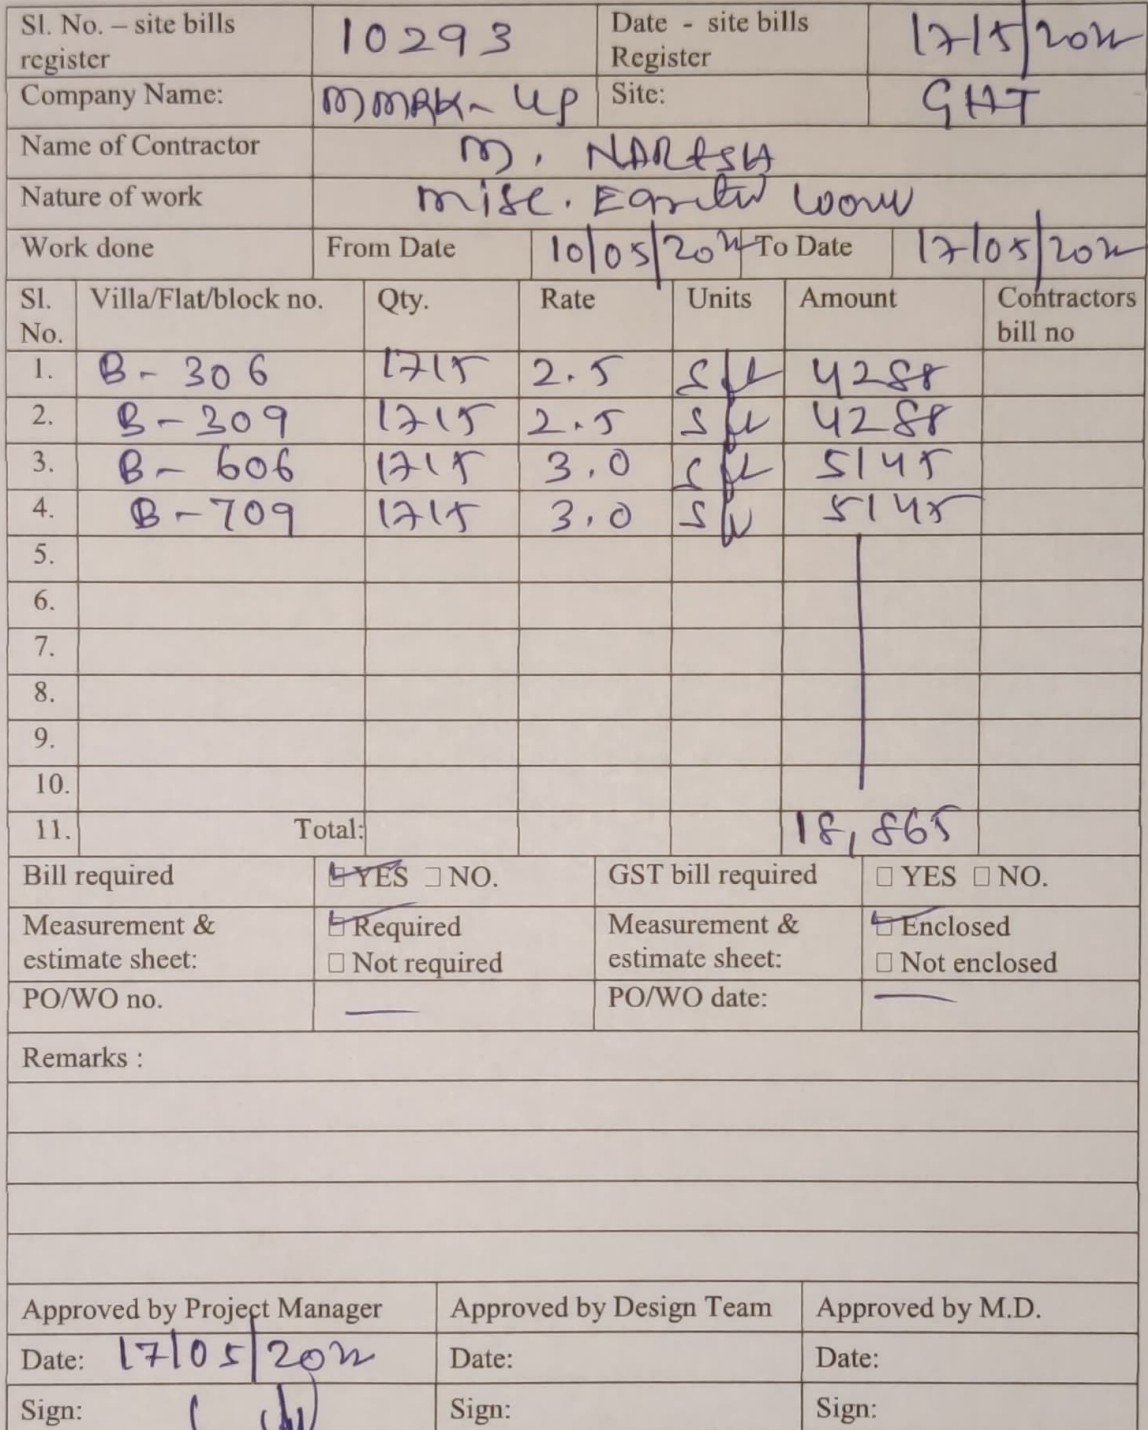 Sl. No. – site bills register 10293 Date - site bills Register 17/5/2022
Company Name: Site: GHT
Name of Contractor M. NARESH
Nature of work misc. work
Work done From Date 10/05/2022 To Date 17/05/2022
Sl. No. Villa/Flat/block no. Qty. Rate Units Amount Contractors bill no
1. B- 306 1715 2.5 sft 4288
2. B-309 1715 2.5 sft 4288
3. B- 606 1715 3.0 sft 5145
4. B-709 1715 3.0 sft 5145
5.
6.
7.
8.
9.
10.
11. Total: 18,865
Bill required ☑ YES □ NO. GST bill required □ YES □ NO.
Measurement & estimate sheet: ☑ Required □ Not required Measurement & estimate sheet: ☑ Enclosed □ Not enclosed
PO/WO no. — PO/WO date: —
Remarks :
Approved by Project Manager Approved by Design Team Approved by M.D.
Date: 17/05/2022 Date: Date:
Sign: Sign: Sign: